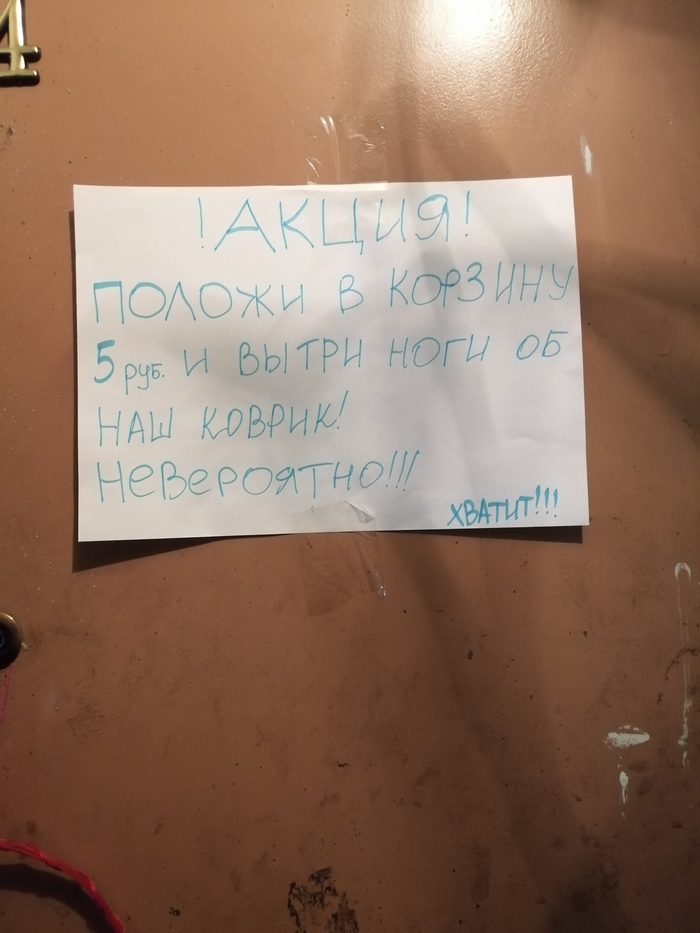 4
!АКЦИЯ!
ПОЛОЖИ В КОРЗИНУ
5 руб. И ВЫТРИ НОГИ ОБ
НАШ КОВРИК!
НЕВЕРОЯТНО!!!
ХВАТИТ!!!